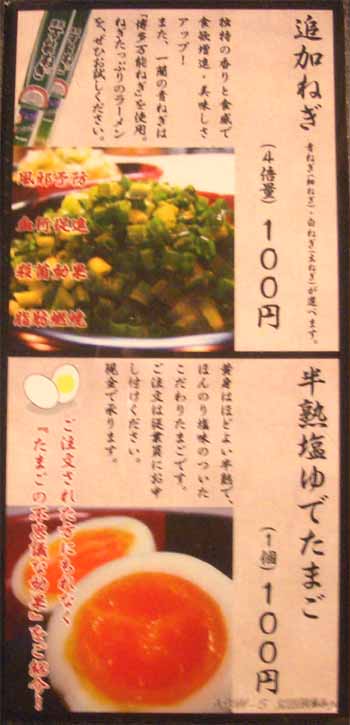 追加ねぎ
青ねぎ(細ねぎ)・白ねぎ(太ねぎ)が選べます。
(4倍量)100円
独特の香りと食感で
食欲増進・美味しさ
アップ!
また、一蘭の青ねぎは
「博多万能ねぎ」を使用。
ねぎたっぷりのラーメン
を、ぜひお試しください。
風邪予防
血行促進
殺菌効果
脂肪燃焼
半熟塩ゆでたまご
(1個)100円
黄身はほどよい半熟で、
ほんのり塩味のついた
こだわりたまごです。
ご注文は従業員にお申
し付けください。
現金で承ります。
ご注文された方にもれなく
『たまごの不思議な効果』をご紹介!